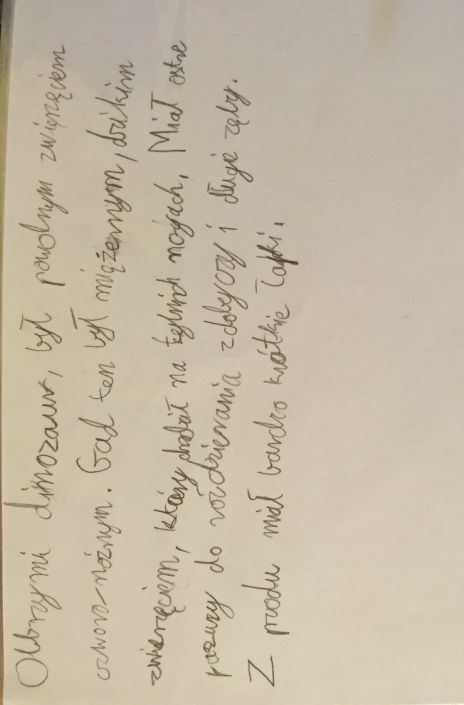 Olbrzymi dinozaur, był powolnym zwierzęciem
czworo-nóżnym. Gad ten był mięsżernym, dzikim
zwierzęciem, który chodził na tylnich nogach. Miał ostre
pazury do rozdzierania zdobyczy i długie zęby.
Z przodu miał bardzo krótkie łapki.